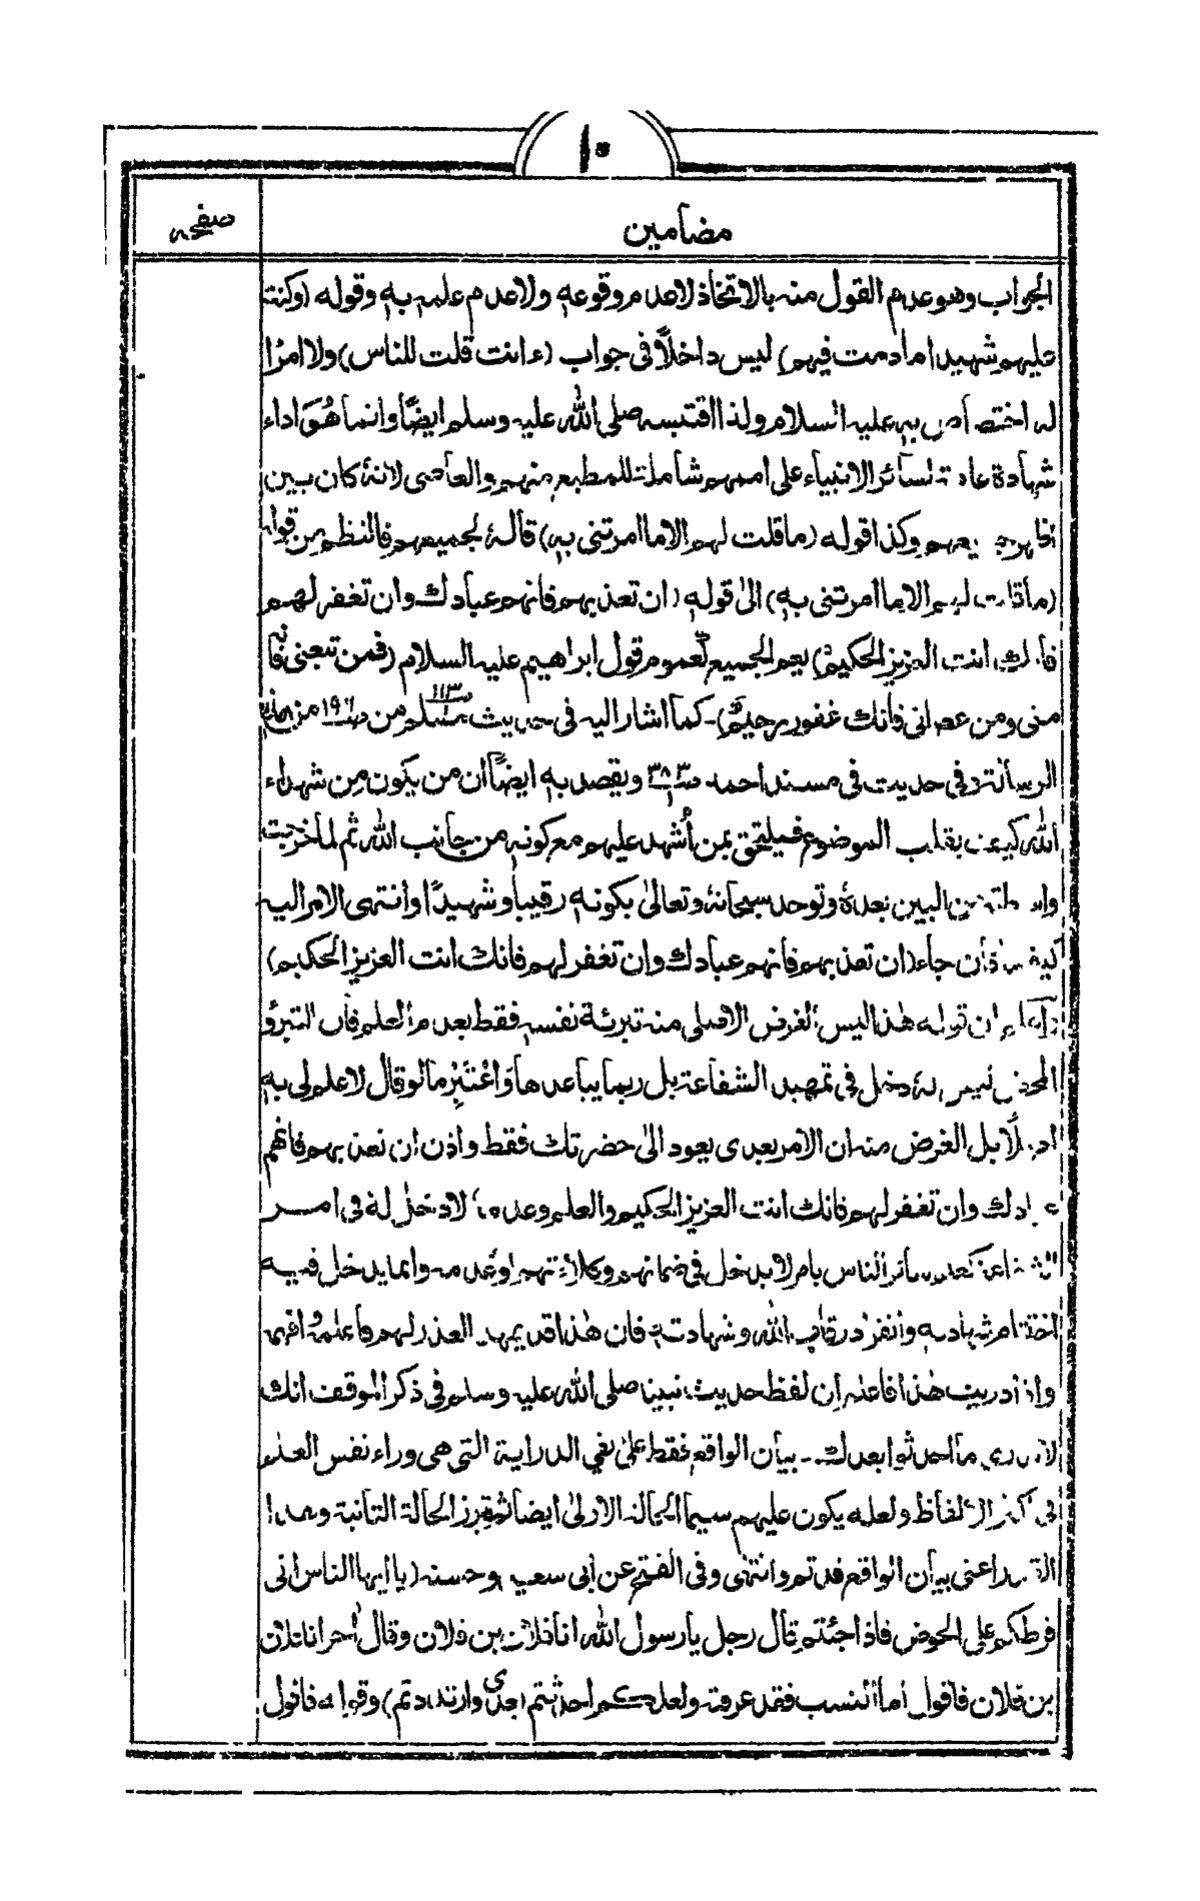 ١٠
مضامین
صفحہ
الجواب وهو عدم القول منه بالاتخاذ لاعدم وقوعه ولاعدم علمه به وقوله (وكنت
عليهم شهيدا مادمت فيهم) ليس داخلاً فى جواب (ءانت قلت للناس) ولا امرًا
له عليه السلام ولذا اقتبسه صلى الله عليه وسلم ايضًا وانما هُوَ اداء
شهادة لسائر الانبياء على اممهم شاملة للمطيع منهم والعاصى لانهٗ كان بين
وكذا قوله (ما قلت لهم الا ما امرتنى به) قالهٗ لجميعهم فالنظم من قوله
(ما قلت لهم الا ما امرتنى به) الىٰ قوله (ان تعذبهم فانهم عبادك وان تغفر لهم
فانك انت العزيز الحكيم) يعم الجميع لعموم قول ابراهيم عليه السلام (فمن تبعنى فانه
منى ومن عصانى فانك غفور رحيم)۔ كما اشار اليه فى حديث مسلم ص١١٣ من ص١٩٦ من
الرسالة وفى حديث فى مسند احمد ص٣٨٣ ويقصد به ايضًا ان من يكون من شهداء
الله كيف بقلب الموضوع فيلتحق بمن أُشهد عليهم مع كونه من جانب الله ثم لما خربت
البين بعدهٗ وتوحد سبحانهٗ وتعالىٰ بكونه رقيبا وشهيدًا وانتهى الامر اليه
كيف جاء (ان تعذبهم فانهم عبادك وان تغفر لهم فانك انت العزيز الحكيم)
ان قوله هٰذا ليس الغرض الاصلى منه تبرئة نفسه فقط بعدم العلم فان التبرؤ
المحض ليس لهٗ دخل فى تمهيد الشفاعة بل ربما يباعدها وَاعْتَبِرْ مالو قال لا علم لى به
بل الغرض منه ان الامر بعدى يعود الىٰ حضرتك فقط واذن ان تعذبهم فانهم
عبادك وان تغفر لهم فانك انت العزيز الحكيم والعلم وعدمه لا دخل لهٗ فى امر
سائر الناس بامر لا يدخل فى ضمانهم وكلاءتهم او عدمه وانما يدخل فيه
شهادته وانفراد رقابة الله وشهادته فان هٰذا قد يمهد العذر لهم فاعلمهٗ وافهم
واذا دريت هٰذا فاعلم ان لفظ حديث نبينا صلى الله عليه وسلم فى ذكر الموقف انك
لا تدرى ما احدثوا بعدك۔ بيان الواقع فقط علىٰ نفي الدراية التى هى وراء نفس العلم
فى اكثر الالفاظ ولعله يكون عليهم سيما الحالة الاولىٰ ايضا الحالة الثانية
اعنى بيان الواقع قد تم وانتهٰى وفى الفتح عن ابى سعيد وحسنه (يا ايها الناس انى
فرطكم على الحوض فاذا جئتم قال رجل يا رسول الله انا فلان بن فلان وقال اٰخر انا فلان
بن فلان فاقول اما النسب فقد عرفته ولعلكم احدثتم بعدى وارتددتم) وقوله فاقول